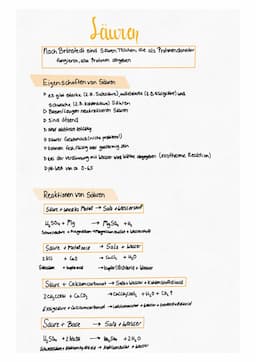 Säuren
Nach Brönstedt sind Säuren Teilchen, die als Protonendonator
fungieren, also Protonen abgeben
Eigenschaften von Säuren
es gibt starke (z.B. Salzsäure), mittelstarke (z.B. Essigsäure) und
schwache (z.B. Kohlensäure) Säuren
Basen/Laugen neutralisieren Säuren
sind ätzend
elektrisch leitfähig
saurer Geschmack (nicht probieren!)
können fest, flüssig oder gasförmig sein
bei der Verdünnung mit Wasser wird Wärme abgegeben (exotherme Reaktion)
pH-Wert von ca. 0-6,5
Reaktionen von Säuren
Säure + unedles Metall → Salz + Wasserstoff
H₂SO₄ + Mg → MgSO₄ + H₂
Schwefelsäure + Magnesium → Magnesiumsulfat + Wasserstoff
Säure + Metalloxid → Salz + Wasser
2HCl + CuO → CuCl₂ + H₂O
Salzsäure + Kupferoxid → Kupfer(II)chlorid + Wasser
Säure + Calciumcarbonat → Salz + Wasser + Kohlenstoffdioxid
2CH₃COOH + CaCO₃ → Ca(CH₃COO)₂ + H₂O + CO₂ ↑
Essigsäure + Calciumcarbonat → Calciumacetat + Wasser + Kohlenstoffdioxid
Säure + Base → Salz + Wasser
H₂SO₄ + 2NaOH → Na₂SO₄ + 2H₂O
Schwefelsäure + Natriumhydroxid → Natriumsulfat + Wasser